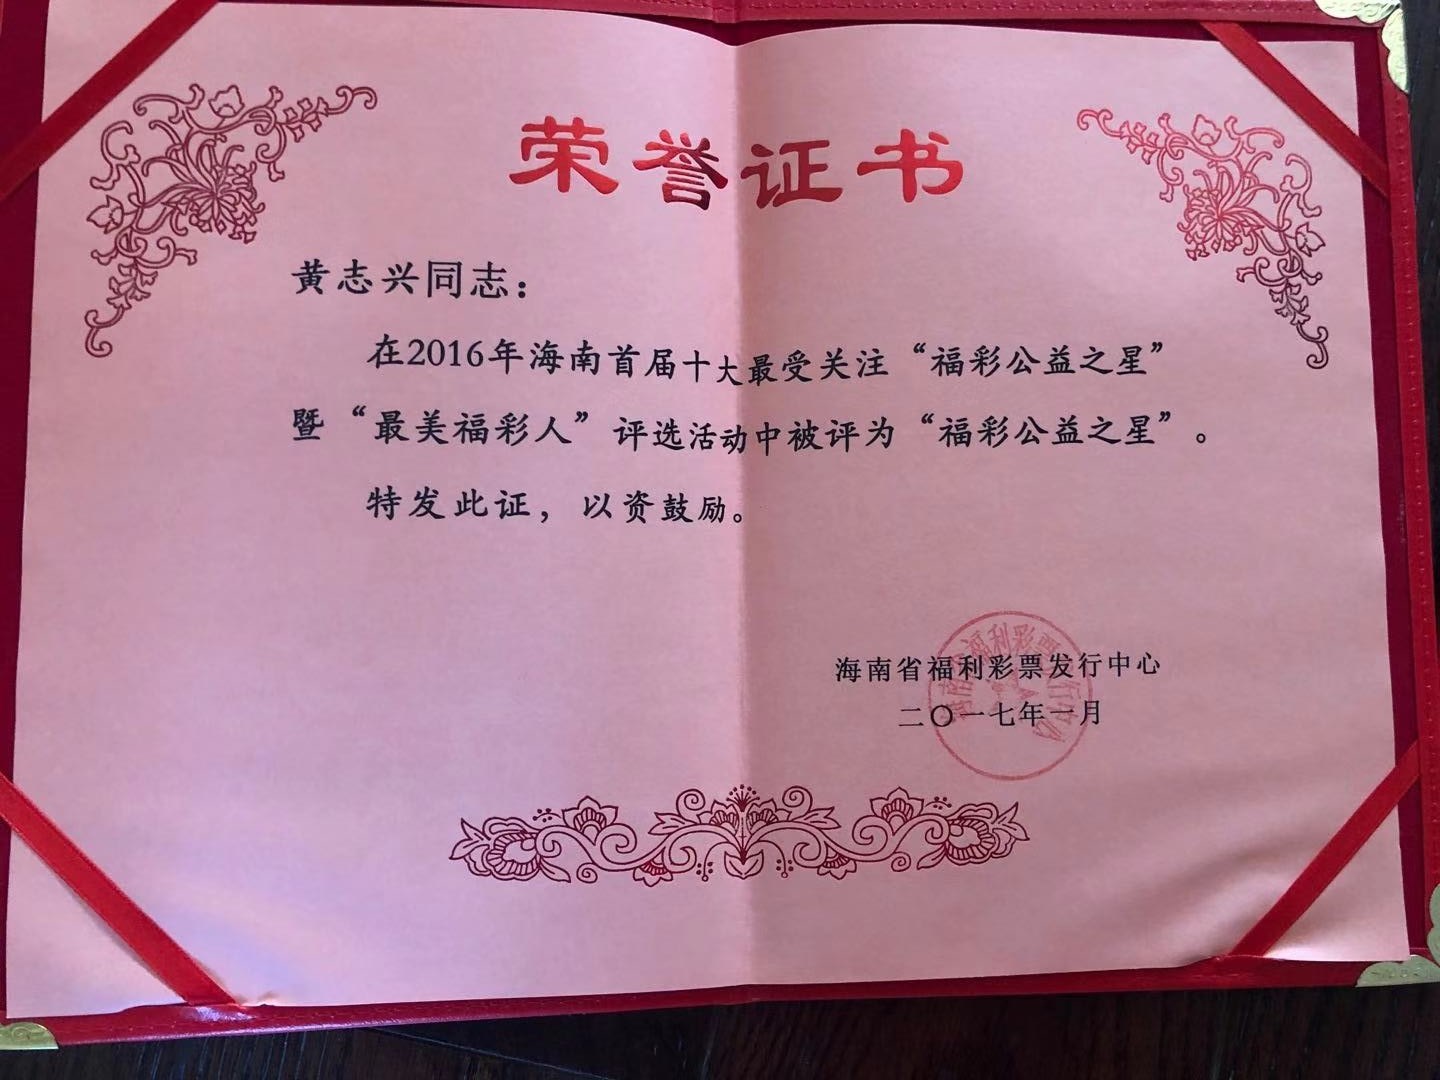 荣誉证书
黄志兴同志：
在2016年海南首届十大最受关注“福彩公益之星”
暨“最美福彩人”评选活动中被评为“福彩公益之星”。
特发此证，以资鼓励。
海南省福利彩票发行中心
二〇一七年一月